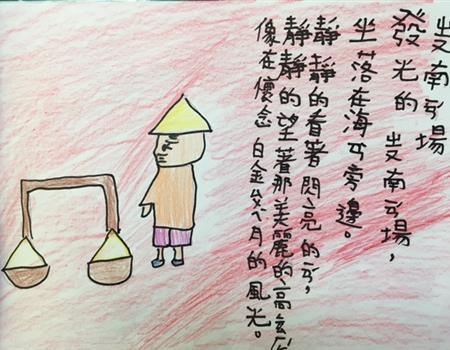 南場
發光的 南場，
坐落在海旁邊。
靜靜的看著閃亮的，
靜靜的望著那美麗的高
像在懷念白金月的風光。